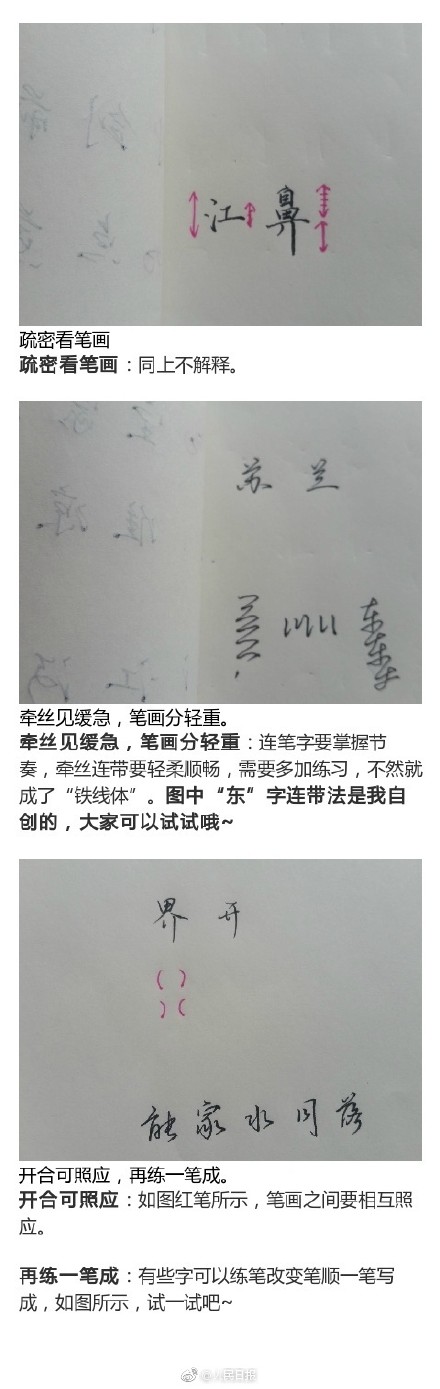 江 鼻
疏密看笔画
疏密看笔画：同上不解释。
苏 兰
牵丝见缓急，笔画分轻重。
牵丝见缓急，笔画分轻重：连笔字要掌握节
奏，牵丝连带要轻柔顺畅，需要多加练习，不然就
成了“铁线体”。图中“东”字连带法是我自
创的，大家可以试试哦~
界 开
能 家 水 同 落
开合可照应，再练一笔成。
开合可照应：如图红笔所示，笔画之间要相互照
应。
再练一笔成：有些字可以练笔改变笔顺一笔写
成，如图所示，试一试吧~
@人民日报